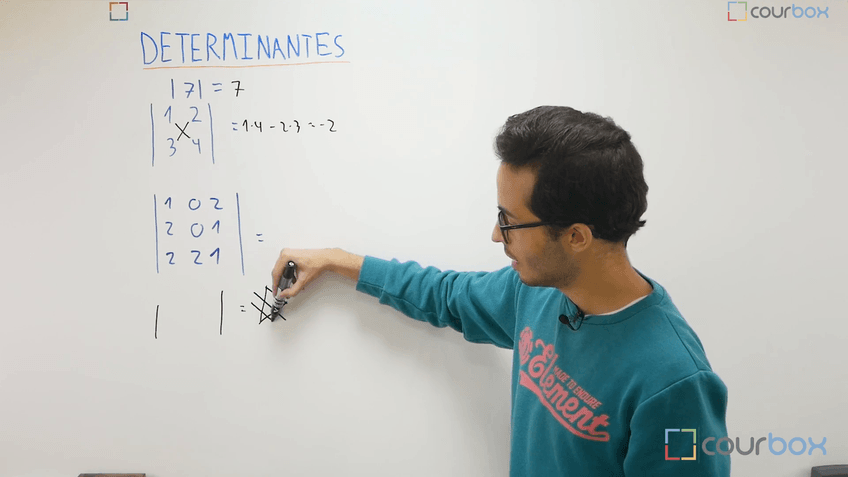 courbox
DETERMINANTES
|7| = 7
|1 2|
|3 4| = 1·4 - 2·3 = -2
|1 0 2|
|2 0 1| =
|2 2 1|
| | =
Element
MADE TO ENDURE
courbox